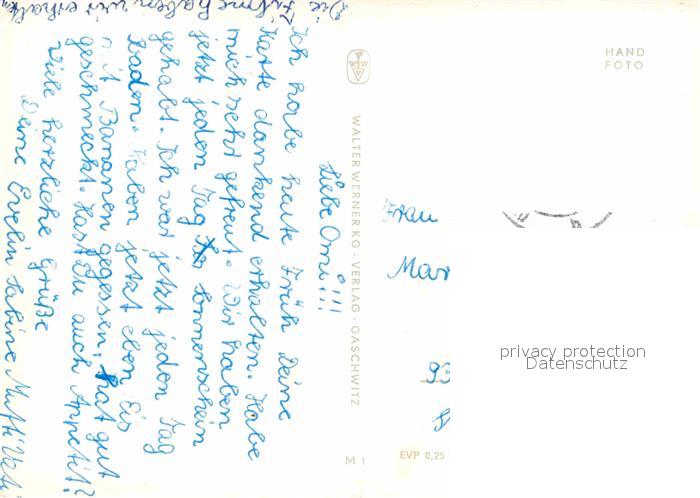 Liebe Omi!!!
Ich habe heute Früh Deine
Karte dankend erhalten. Habe
mich sehr gefreut. Wir haben
jetzt jeden Tag Sonnenschein
gehabt. Ich war jetzt jeden Tag
baden. Haben jetzt eben Eis
mit Bananen gegessen, hat gut
geschmeckt. Hast Du auch Appetit?
Viele herzliche Grüße
Deine Evelin Sabine Mutti Vati
Die Filme haben wir erhalten
WALTER WERNER KG · VERLAG · GASCHWITZ
M 1
EVP 0,25
HAND
FOTO
Frau
Mar
93
privacy protection
Datenschutz